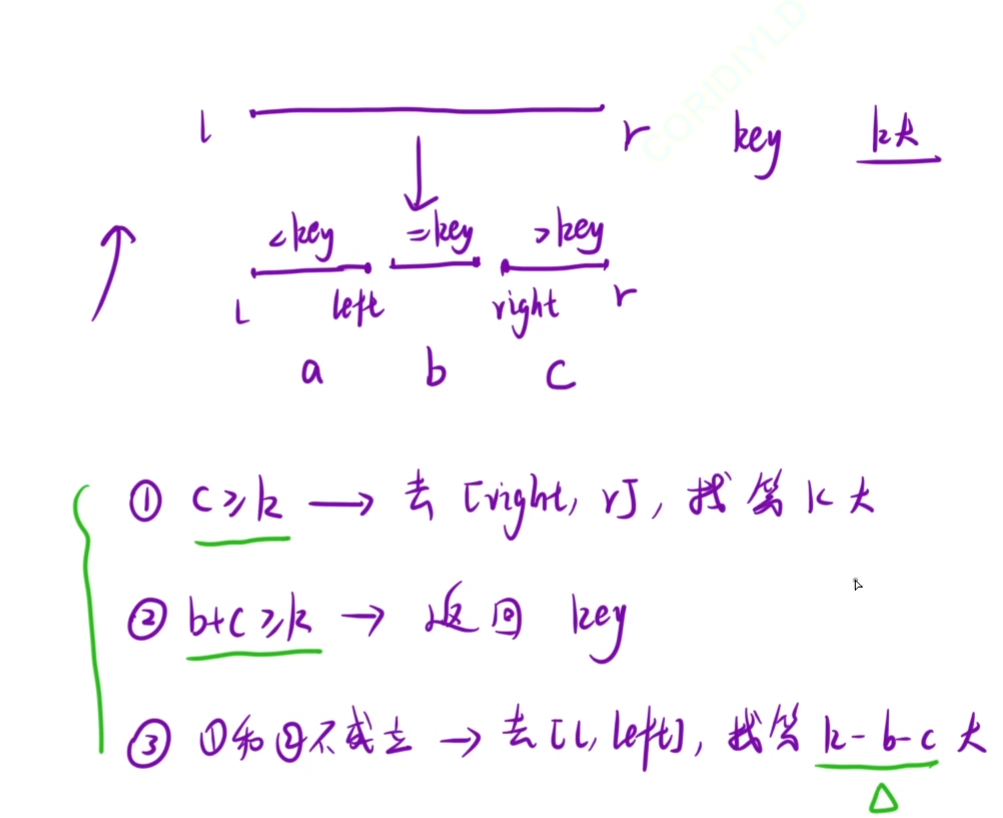 CORIDIYLD
l r key k大
<key =key >key
l left right r
a b c
① c≥k → 去 [right, r], 找第 k 大
② b+c≥k → 返回 key
③ ①和②不成立 → 去 [l, left], 找第 k-b-c 大